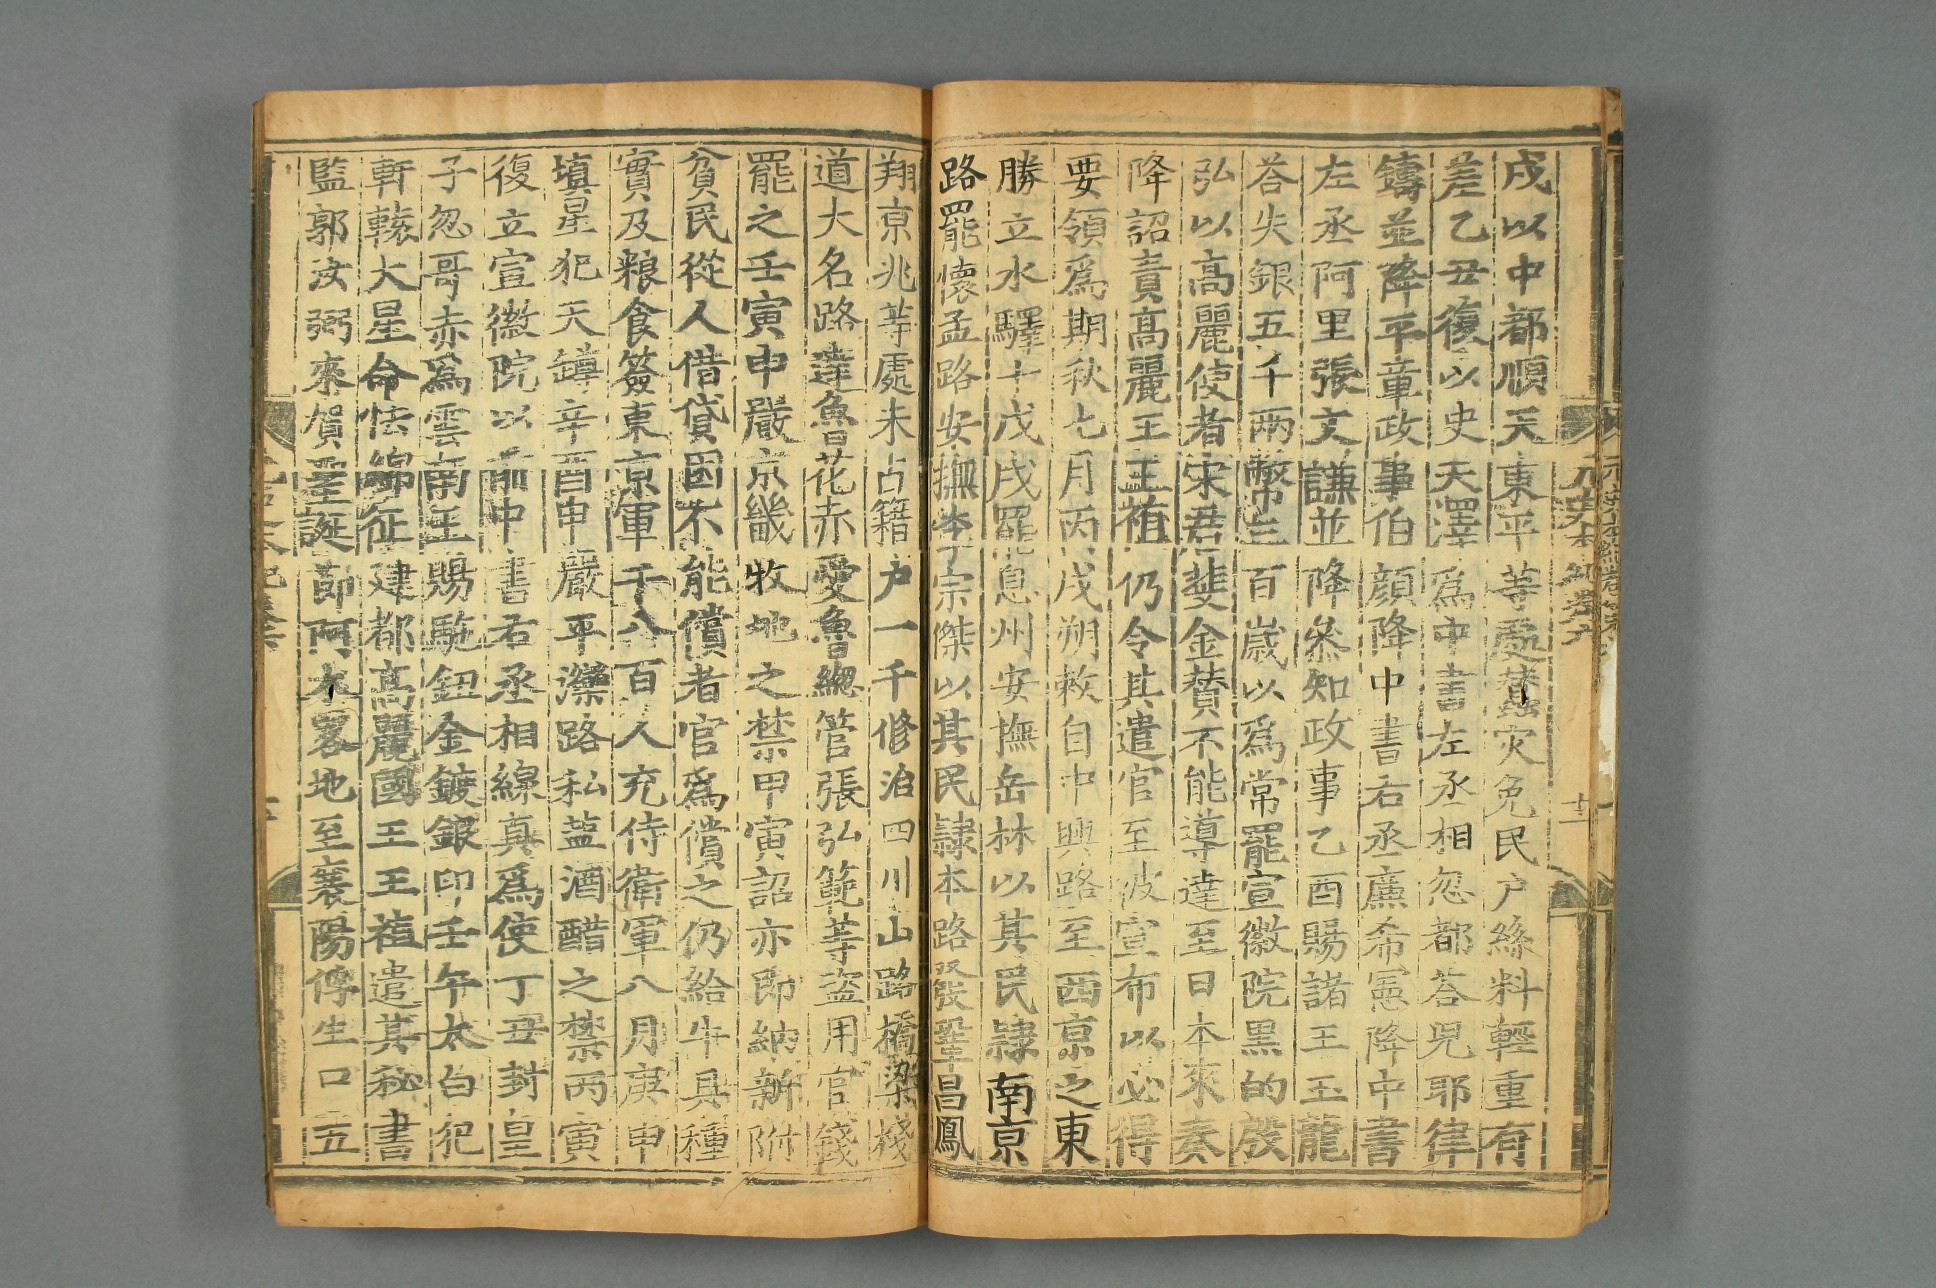 戌以中都順天東平等處蠶灾免民户絲料輕重有
差乙丑復以史天澤爲中書左丞相忽都荅兒耶律
鑄並降平章政事伯顔降中書右丞亷希憲降中書
左丞阿里張文謙並降叅知政事乙酉賜諸王玉龍
荅失銀五千兩幣三百歲以爲常罷宣徽院黑的殷
弘以高麗使者宋君斐金賛不能導達至日本來奏
降詔責高麗王王禃仍令其遣官至彼宣布以必得
要領爲期秋七月丙戌朔敕自中興路至西京之東
勝立水驛十戊戌罷息州安撫岳林以其民隷南京
路罷懷孟路安撫李宗傑以其民隷本路發鞏昌鳳
翔京兆等處未占籍户一千修治四川山路橋梁棧
道大名路達魯花赤愛魯總管張弘範等盗用官錢
罷之壬寅申嚴京畿牧地之禁甲寅詔亦即納新附
貧民從人借貸困不能償者官爲償之仍給牛具種
實及粮食簽東京軍千八百人充侍衛軍八月庚申
填星犯天罇辛酉申嚴平灤路私盬酒醋之禁丙寅
復立宣徽院以前中書右丞相線真爲使丁丑封皇
子忽哥赤爲雲南王賜駞鈕金鍍銀印壬午太白犯
軒轅大星命怯綿征建都高麗國王王禃遣其秘書
監郭汝弼來賀聖誕節阿木畧地至襄陽俘生口五
元史本紀卷六
十二